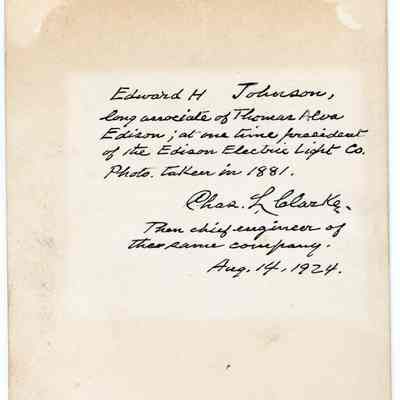 Edward H Johnson,
long associate of Thomas Alva
Edison; at one time president
of the Edison Electric Light Co.
Photo. taken in 1881.
Chas. L. Clarke.
Then chief engineer of
the same company.
Aug. 14, 1924.